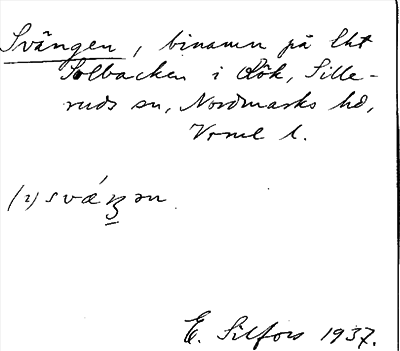 Svängen, binamn på lht
Solbacken i Rök, Sille-
ruds sn, Nordmarks hd,
Vrml l.
(2) svǽŋ ən
E. Silfors 1937.